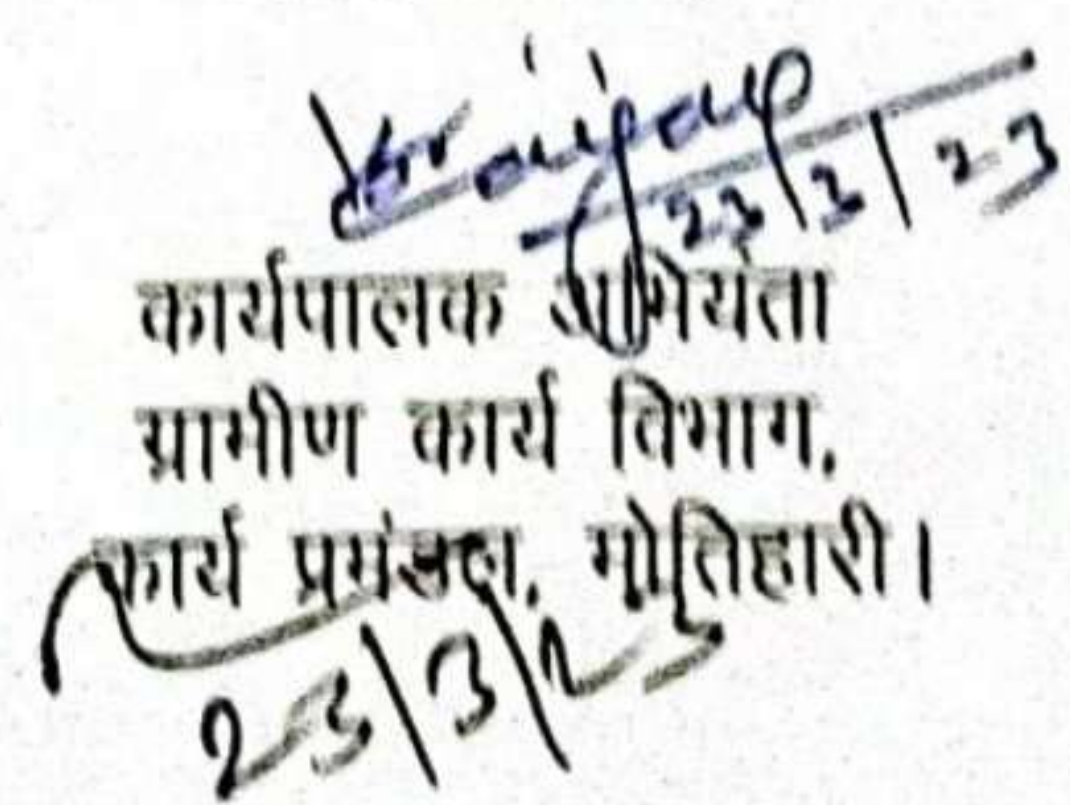 23/3/23
कार्यपालक अभियंता
ग्रामीण कार्य विभाग,
कार्य प्रमंडल, मोतिहारी।
23/3/23